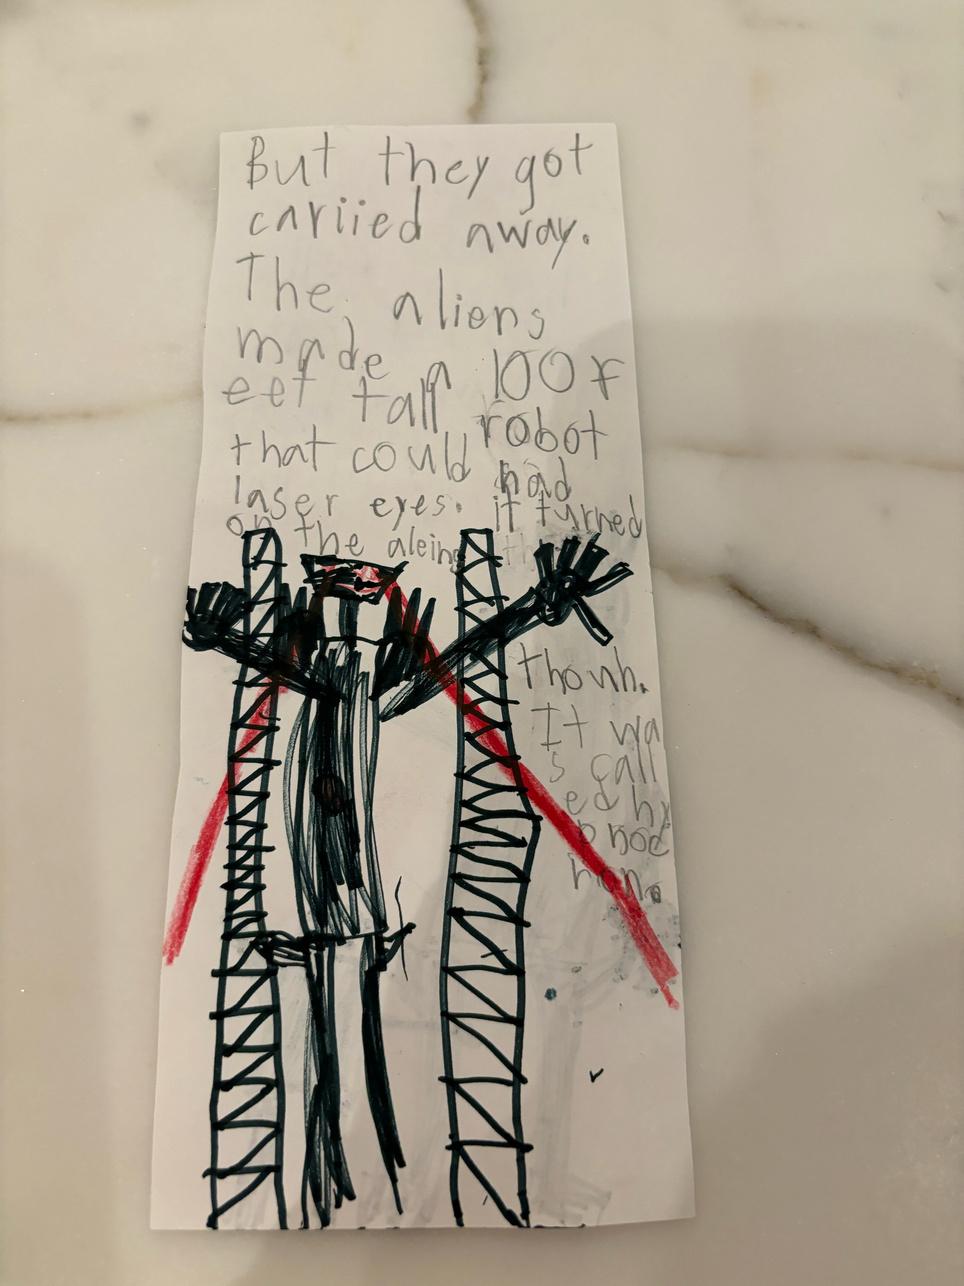 But they got
cariied away.
The aliens
made a 100 f
eet tall robot
that could had
laser eyes. it turned
on the aleins
thouh.
It wa
s call
ed hy